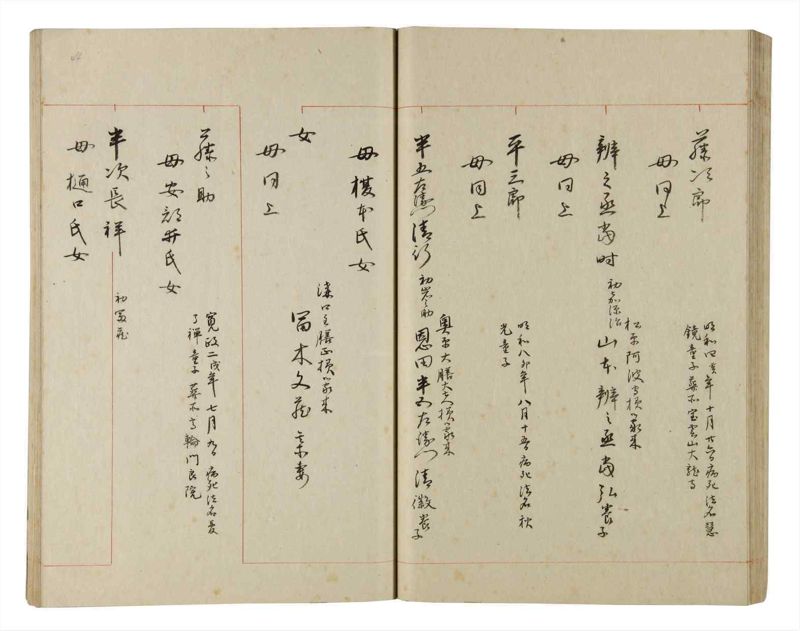 藤次郎
母同上
明和四亥年 十月廿六日病死 法名慧
鏡童子 葬不 宝雲山大龍寺
辨之丞 時
母同上
初 源治 山本辨之丞 弘養子
松平阿波守様家来
平三郎
母同上
明和八卯年 八月十五日病死 法名秋
光童子
半五左衛門清行 初岩之助 恩田半五左衛門清徽養子
奥平大膳大夫様家来
母榎本氏女
女
母同上
溝口主膳正様家来
冨木文蔵 妻
藤之助
母安部井氏女
寛政二戌年 七月九日病死 法名夏
了禅童子 葬不 高輪門良院
半次長祥
母樋口氏女